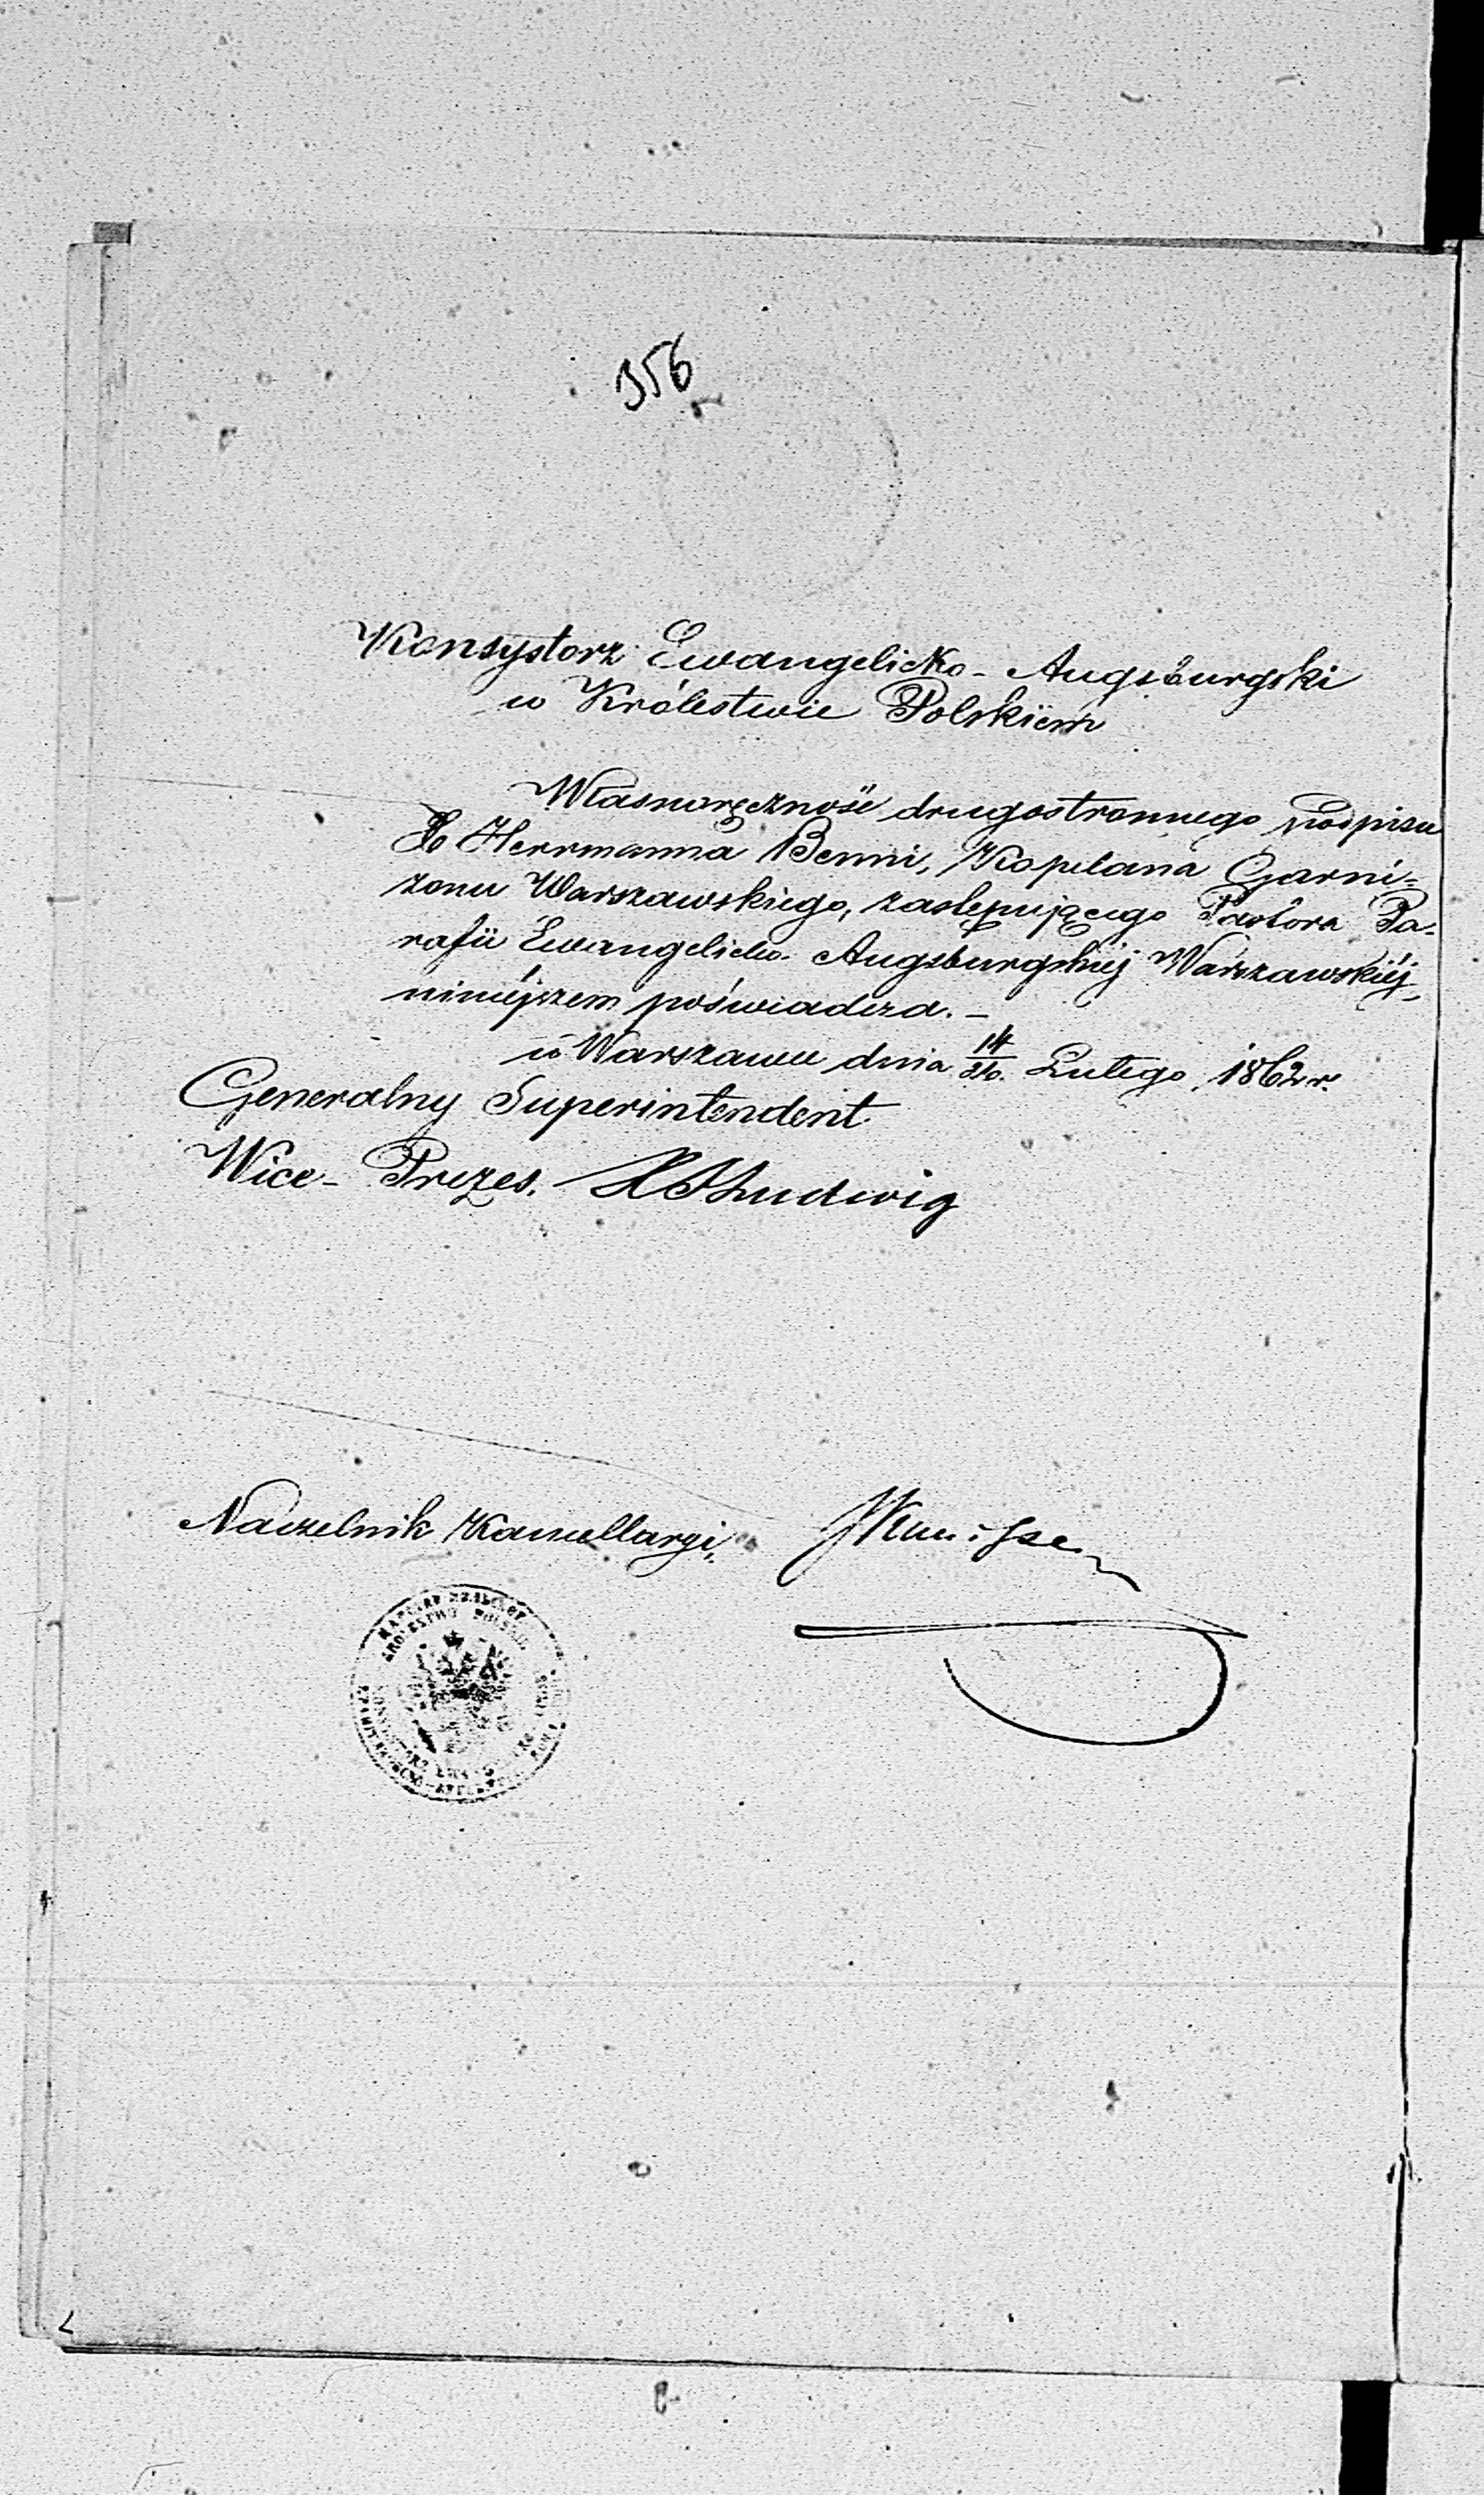 356
Konsystorz Ewangelicko-Augsburgski
w Królestwie Polskiem
Własnoręczność drugostronnego podpisu
X Herrmanna Benni, Kapelana Garni-
zonu Warszawskiego, zastępującego Pastora Pa-
rafii Ewangelicko-Augsburgskiéj Warszawskiéj,
niniéjszem poświadcza. —
w Warszawie dnia 14/26. Lutego 1862 r.
Generalny Superintendent
Wice-Prezes. Ludwig
Naczelnik Kancellaryi,